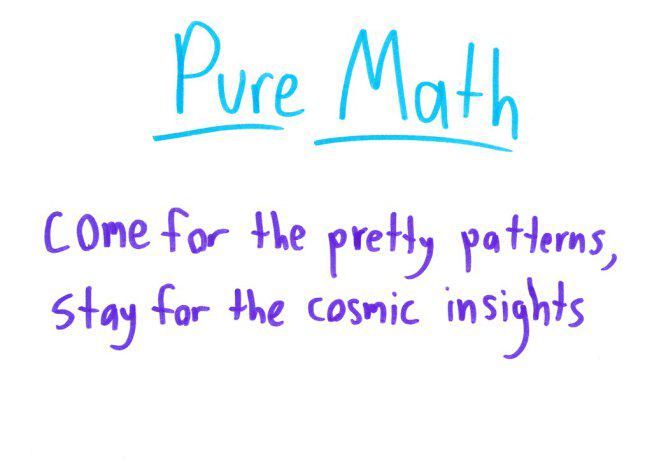 Pure Math
Come for the pretty patterns,
stay for the cosmic insights